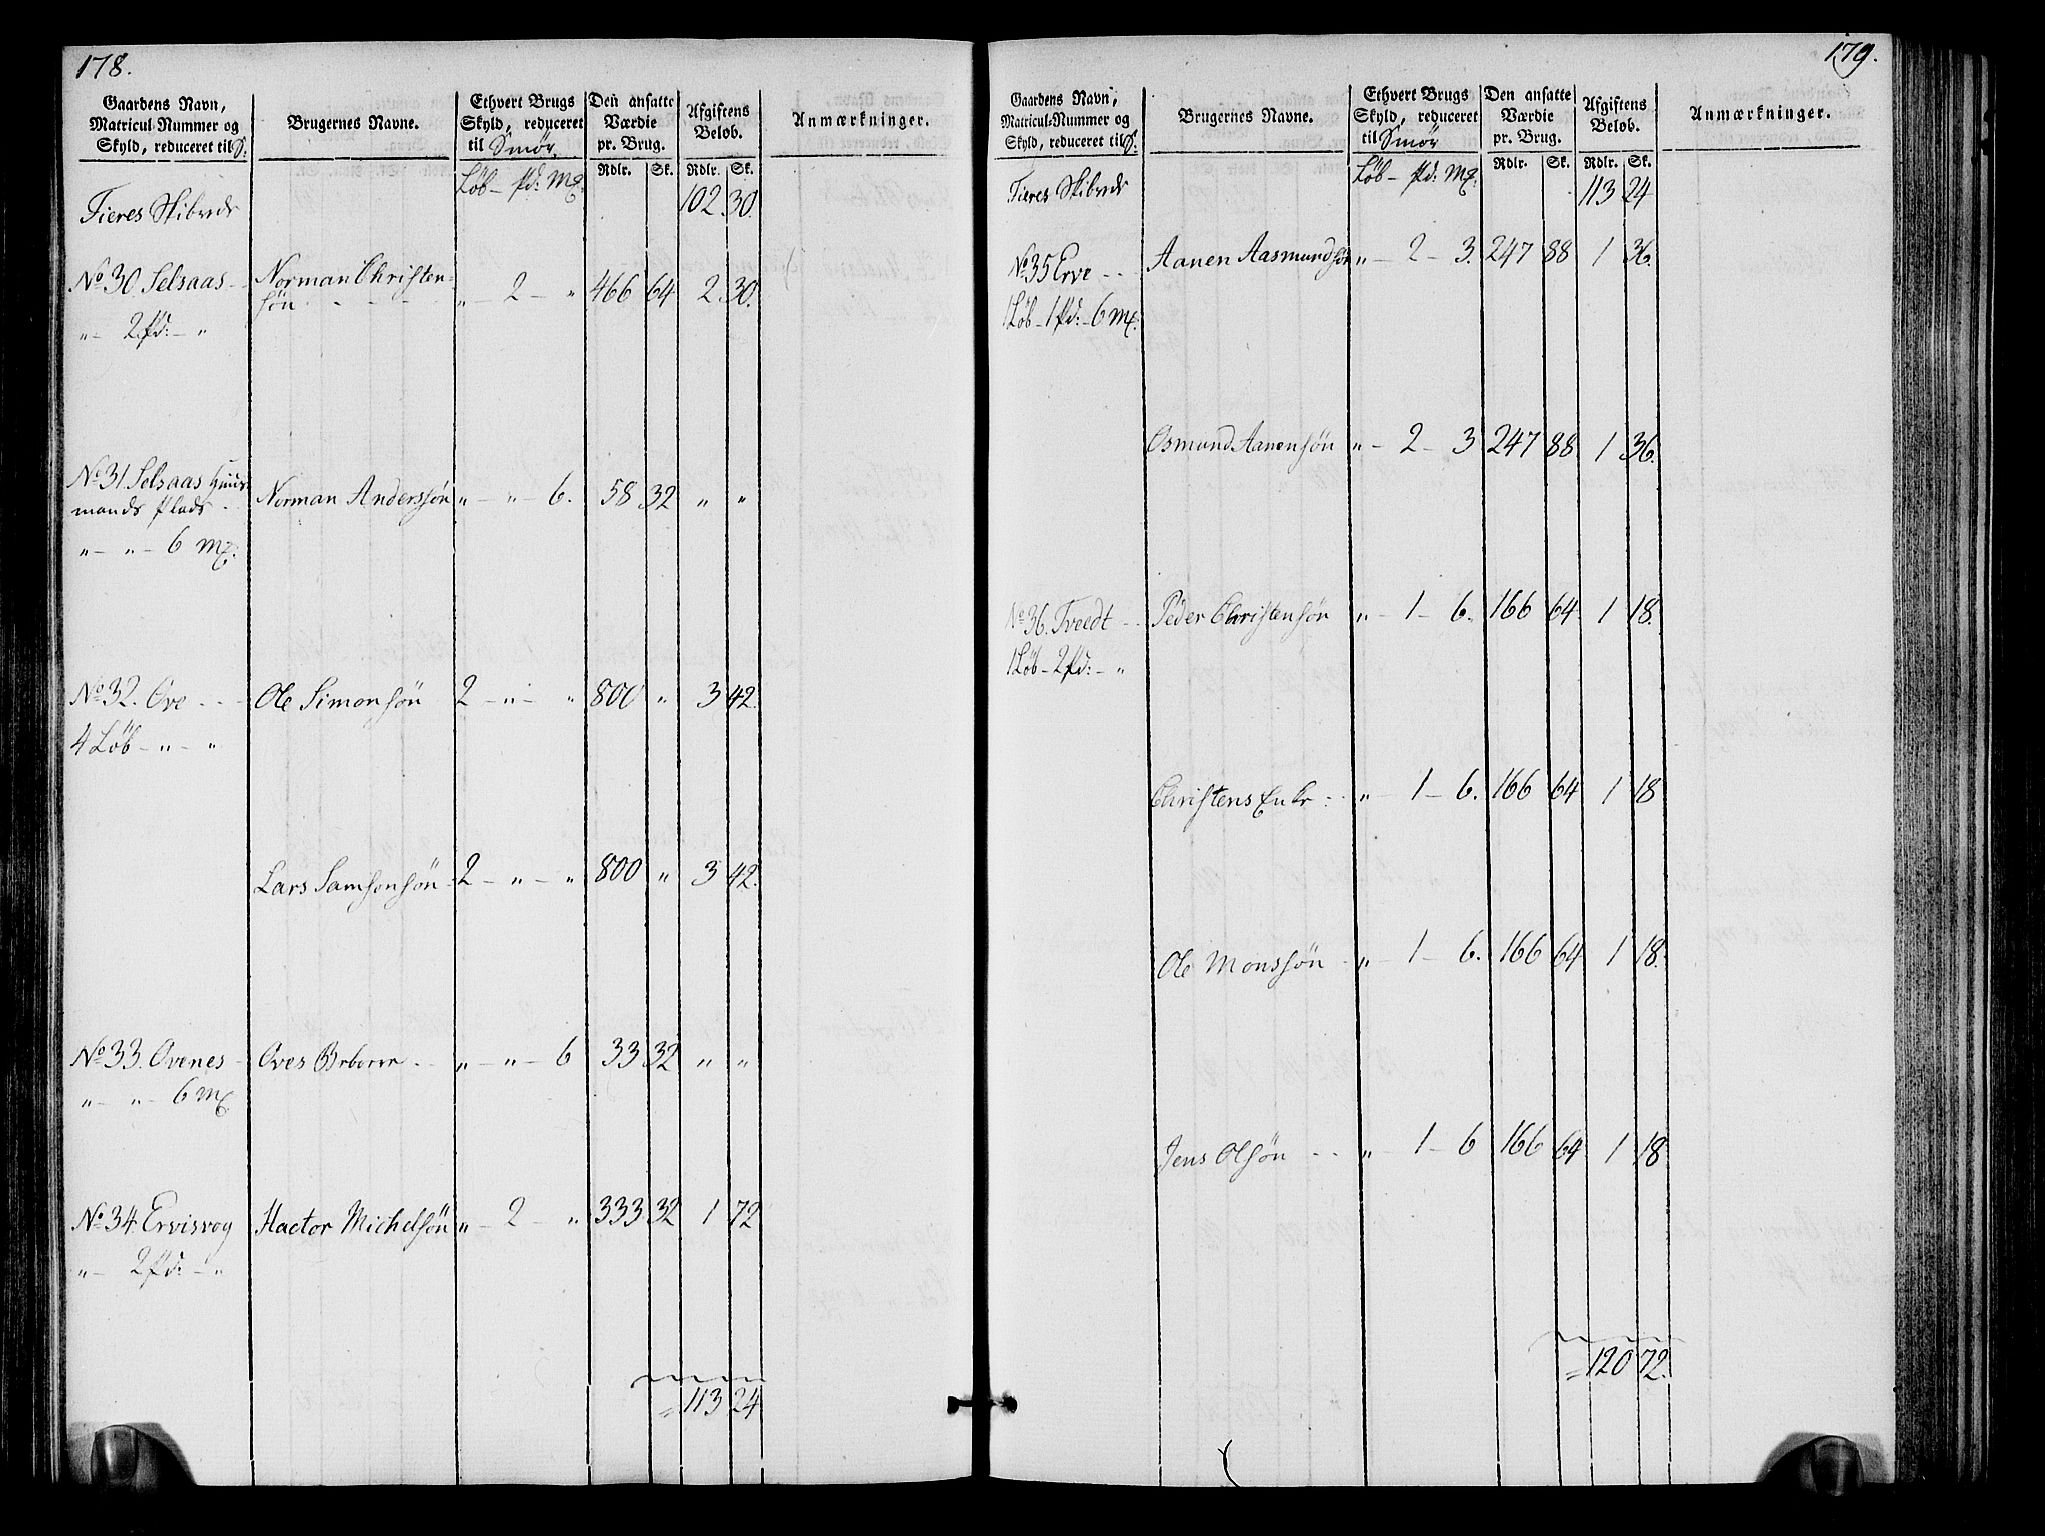 178.
Gaardens Navn, Matricul-Nummer og Skyld, reduceret til S: | Brugernes Navne. | Ethvert Brugs Skyld, reduceret til Smör. | Den ansatte Værdie pr. Brug. | Afgiftens Belob. | Anmærkninger.
Löb - pd: Mk: | Rdlr. | Sk. | Rdlr. | Sk.
Fieres Skibrds 102 30.
No 30 Selsaas - Norman Christen-
sön - - - " - 2 - " 466 64 2 30.
" - 2 pd: - "
No 31 Selsaas Huus-
mands Plads - Norman Anderssön " - " - 6. 58 32 " "
" - " - 6 Mk:
No 32. Ove - - - Ole Simonsön 2 - " - " 800 " 3 42.
4 Löb - " - "
Lars Samsonsön - 2 - " - " 800 " 3 42.
No 33. Ovenes - Oves Beboere - - " - " - 6 33 32 " "
" - " - 6 Mk
No 34 Ervisvog Hactor Michelsön " - 2 - " 333 32 1 72
" - 2 pd: - "
= 113 24
179.
Gaardens Navn, Matricul-Nummer og Skyld, reduceret til S: | Brugernes Navne. | Ethvert Brugs Skyld, reduceret til Smör | Den ansatte Værdie pr. Brug. | Afgiftens Belob. | Anmærkninger.
Löb - pd: Mk: | Rdlr. | Sk. | Rdlr. | Sk.
Fieres Skibrds 113 24
No 35 Erve - - Aanen Aasmundsön " - 2 - 3. 247 88 1 36.
1 Löb - 1 pd: - 6 Mk:
Osmund Aanensön " - 2 - 3 247 88 1 36.
No 36. Tveedt - - Peder Christensön " - 1 - 6. 166 64 1 18.
1 Löb - 2 pd: - "
Christens Enke - - " - 1 - 6. 166 64 1 18
Ole Monssön - " - 1 - 6. 166 64 1 18.
Jens Olsön - - " - 1 - 6 166 64 1 18
= 120 72.